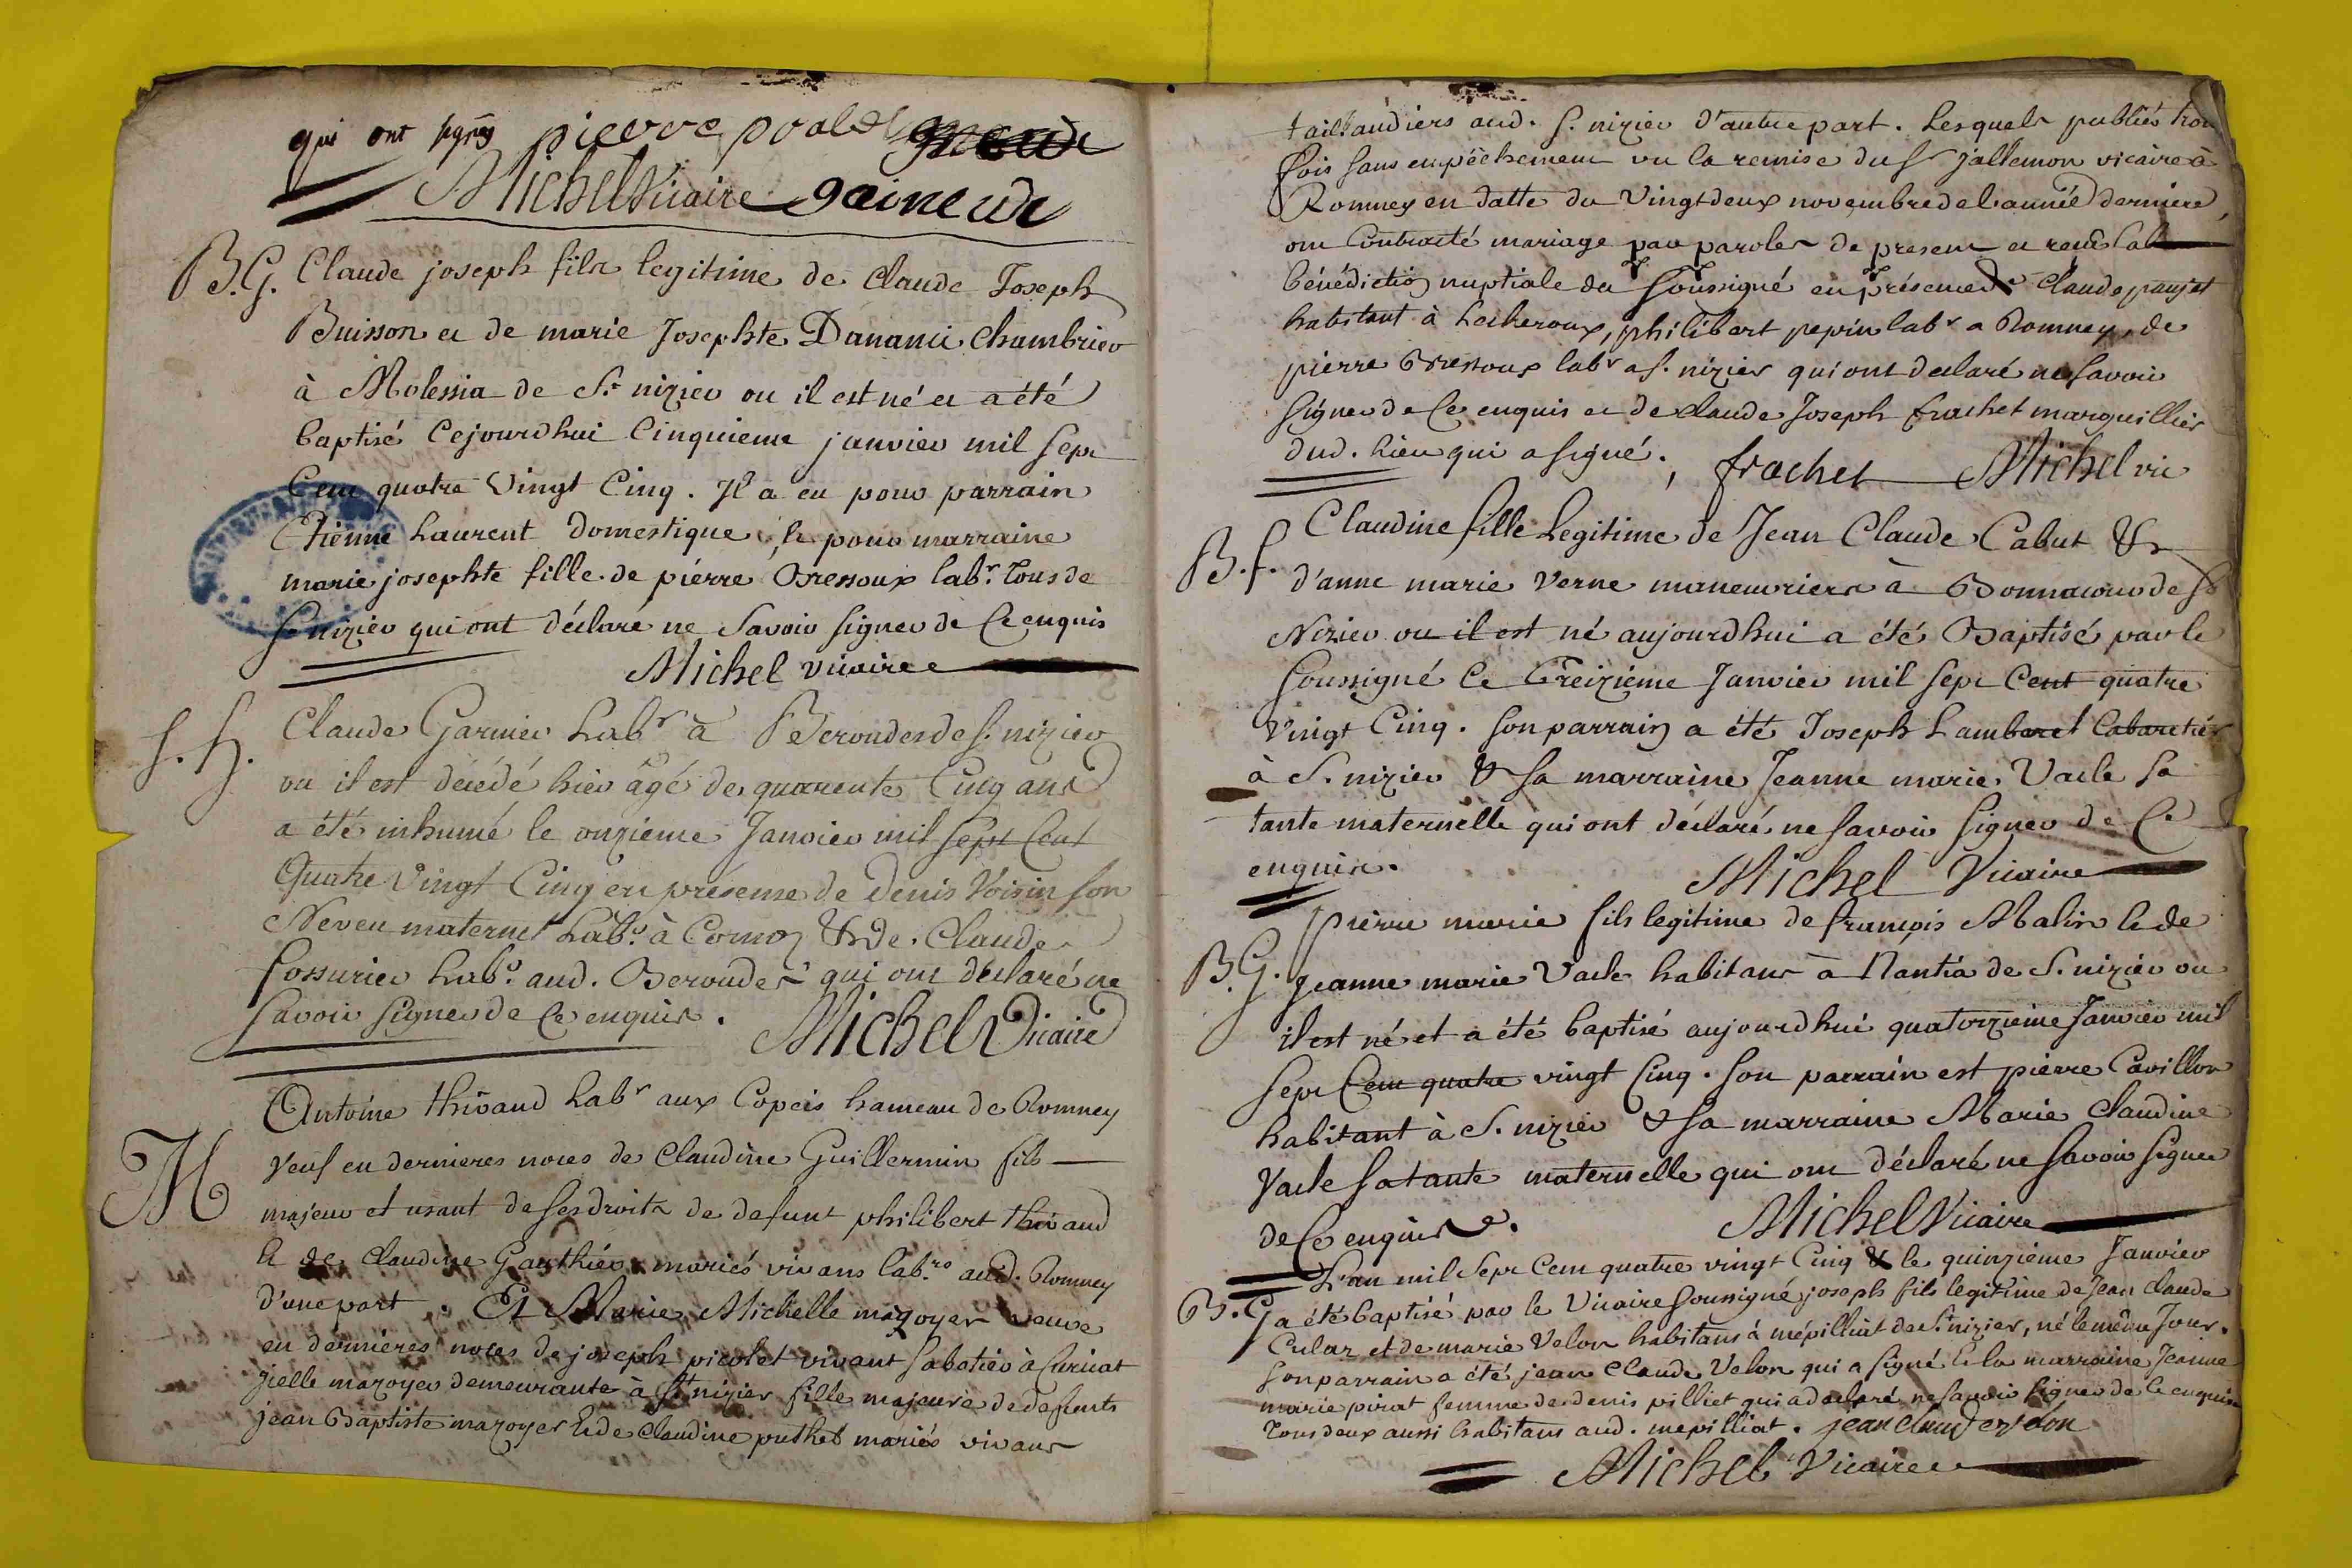 qui ont signés pierre poalet
Michel Vicaire gaineudr
B.G. Claude joseph fils legitime de Claude Joseph
Buisson et de marie Josephte Dananci Chambrier
à Molessia de St nizier ou il est né et a été
baptisé Cejourdhui Cinquieme janvier mil sept
Cent quatre Vingt Cinq. Il a eu pour parrain
Etienne Laurent Domestique, & pour marraine
marie josephte fille de pierre Bressoux labr. tous de
St nizier qui ont déclaré ne Savoir signer de Ce enquis
Michel Vicaire
S.H. Claude Garnier Labr à Beroudes de S. nizier
ou il est décédé hier âgé de quarente Cinq ans
a été inhumé le onzieme Janvier mil Sept Cent
Quatre Vingt Cinq en présence de Denis Voisin son
Neveu maternel Labr. à Cormoz & de Claude
fossurier labr. aud. Beroudes qui ont déclaré ne
Savoir Signer de Ce enquis. Michel Vicaire
M Antoine thivaud Labr aux Copeis hameau de Romney
Veuf en dernieres noces de Claudine Guillermin fils
majeur et usant de ses droits de defunt philibert thivaud
& de Claudine Gauthier mariés vivans labrs aud. Romney
d'une part. Et Marie Michelle mazoyer veuve
en dernières noces de joseph picolet vivant sabotier à Curciat
jcelle mazoyer demeurante à St nizier fille majeure de defunts
jean Baptiste mazoyer & de Claudine puthet mariés vivans
taillandiers aud. S. nizier d'autre part. Lesquels publiés trois
fois sans empêchement vu la remise du Sr jallemon vicaire à
Romney en datte du Vingt deux novembre de l'année derniere,
ont Contracté mariage par paroles de present et recu la
bénédiction nuptiale du Soussigné en présence de Claude paujet
habitant à Lescheroux, philibert pepin labr a Romney, de
pierre Bressoux labr a S. nizier qui ont declaré ne savoir
Signer de Ce enquis et de Claude Joseph frachet marguillier
dud. Lieu qui a signé. frachet Michel vic
B.f. Claudine fille Legitime de Jean Claude Cabut &
d'anne marie Verne maneuvriers à Bonnacour de St
Nizier ou il est né aujourdhui a été Baptisé par le
Soussigné Ce treizieme Janvier mil sept Cent quatre
Vingt Cinq. Son parrain a été Joseph Lamberet Cabaretier
à S. nizier & sa marraine Jeanne marie Vacle sa
tante maternelle qui ont déclaré ne savoir signer de Ce
enquis. Michel Vicaire
B.G. Pierre marie fils legitime de françois Malin & de
jeanne marie Vacle habitans à Nantia de S. nizier ou
il est né et a été baptisé aujourdhui quatorzieme Janvier mil
sept Cent quatre vingt Cinq. Son parrain est pierre Cavillon
habitant à S. nizier & sa marraine Marie Claudine
Vacle sa tante maternelle qui ont déclaré ne savoir signer
de Ce enquis. Michel Vicaire
L'an mil Sept Cent quatre vingt Cinq & le quinzieme Janvier
B.G. a été baptisé par le Vicaire Soussigné joseph fils legitime de Jean Claude
Culaz et de marie Velon habitans à mépilliat de St nizier, né le même Jour.
Son parrain a été jean Claude Velon qui a signé & la marraine Jeanne
marie pirat femme de denis pilliet qui a declaré ne savoir signer de Ce enquis
Tous deux aussi habitans aud. mepilliat.
Michel Vicaire